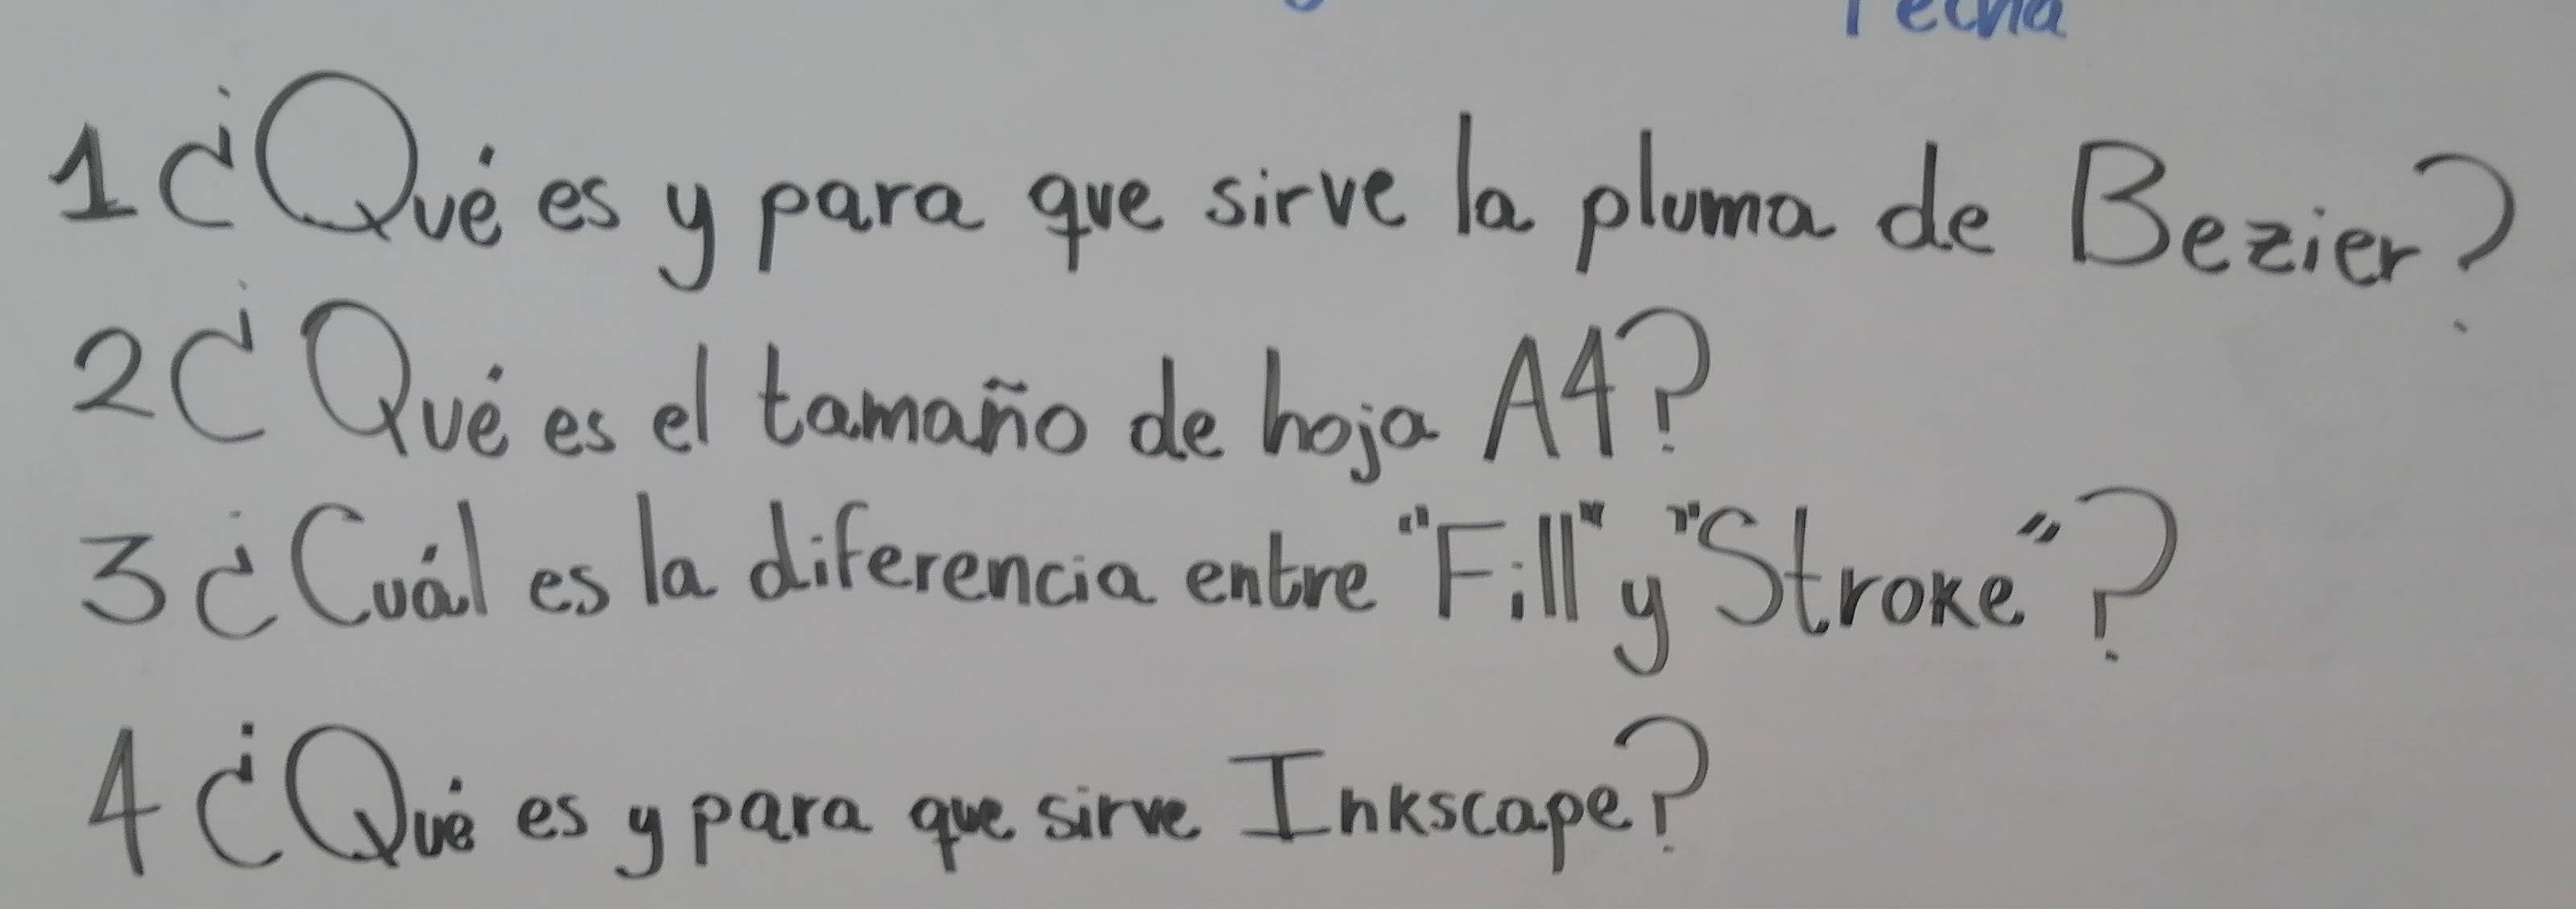 Fecha
1 ¿Qué es y para que sirve la pluma de Bezier?
2 ¿Qué es el tamaño de hoja A4?
3 ¿Cuál es la diferencia entre "Fill" y "Stroke"?
4 ¿Qué es y para que sirve Inkscape?